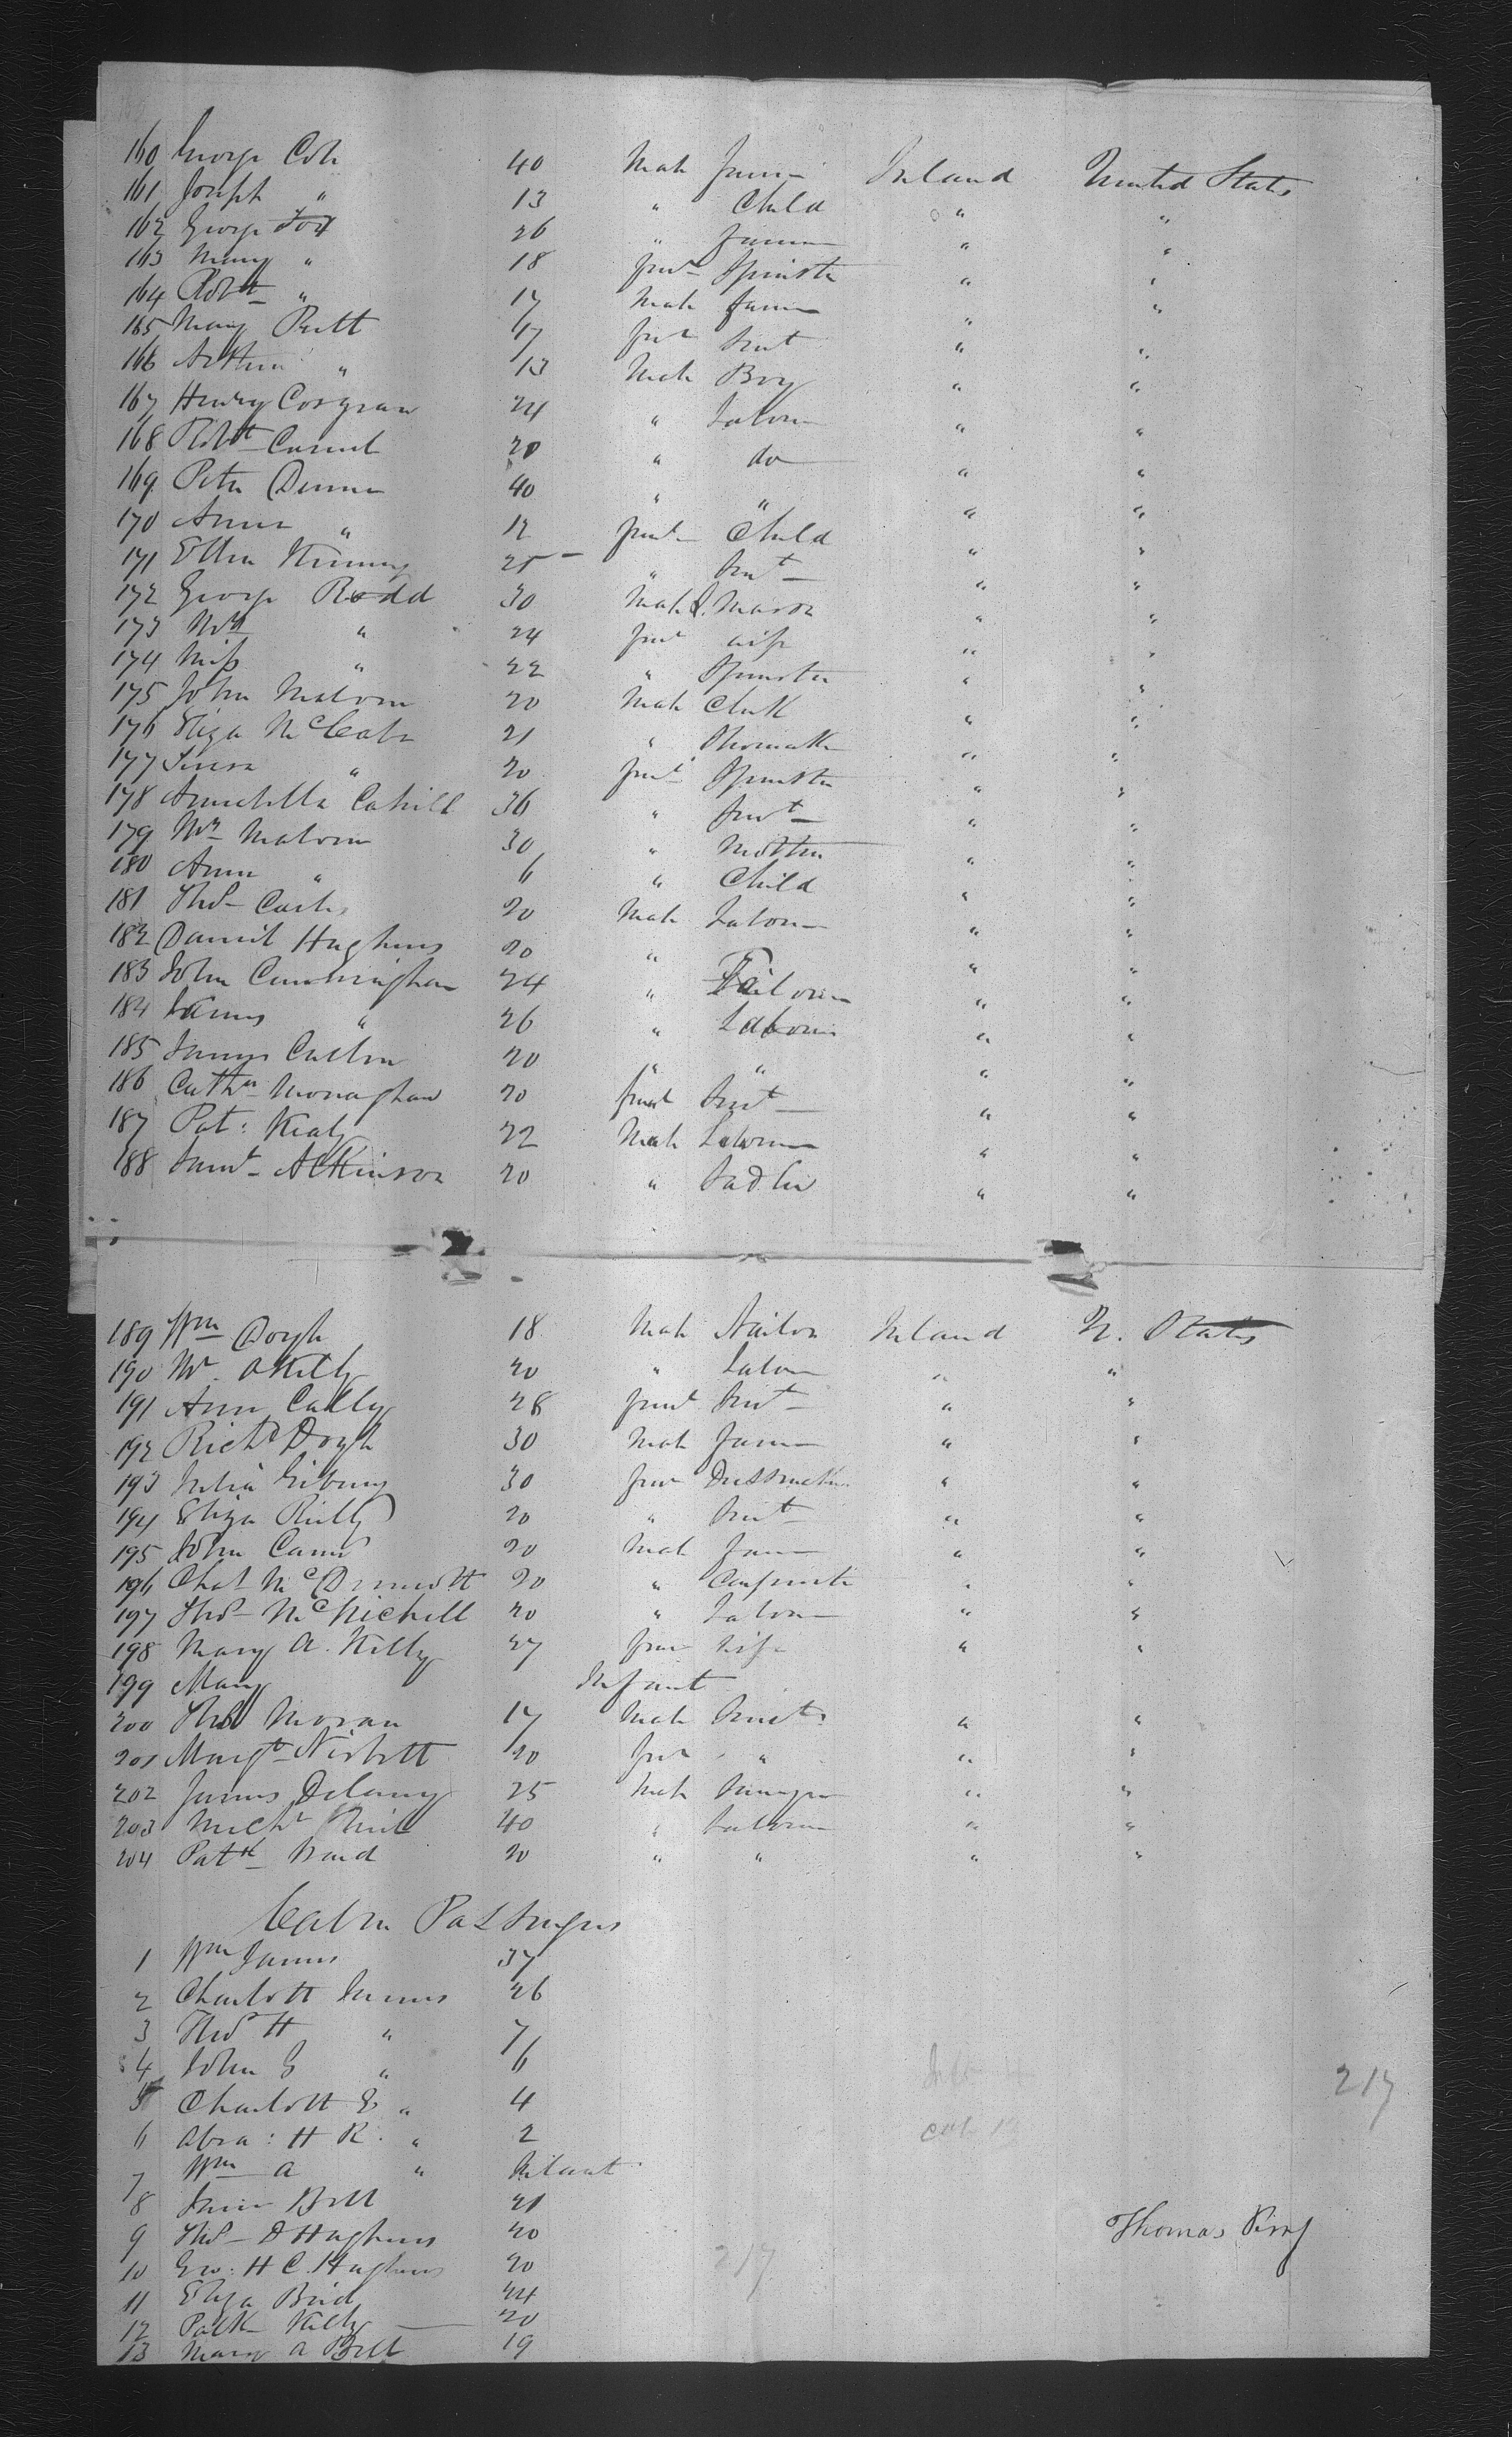 160 George Cole 40 Male Farmer Ireland United States
161 Joseph " 13 " Child " "
162 George Fox 26 " Farmer " "
163 Mary " 18 fem Spinster " "
164 Robt " 17 Male Farmer " "
165 Mary Pratt 17 fem Servt " "
166 Arthur " 13 Male Boy " "
167 Henry Cosgrave 24 " Labourer " "
168 Robt 20 " do " "
169 Peter Dunne 40 " " " "
170 Anne " 12 femle Child " "
171 Ellen Kenny 25 " Servt " "
172 George Rodd 30 Male S. Mason " "
173 Mrs " 24 fem wife " "
174 Miss " 22 " Spinster " "
175 John Malvern 20 Male Clerk " "
176 Eliza McCabe 21 " Shoemaker " "
177 Teresa " 20 fem Spinster " "
178 Annabella Cahill 36 " Servt " "
179 Mrs Malvern 30 " Mother " "
180 Anne " 6 " Child " "
181 Thos 20 Male Labourer " "
182 Daniel Hughes 20 " " "
183 John Cunningham 24 " " "
184 James " 26 " Labourer " "
185 James Cullen 20 " " " "
186 Cathn Monaghan 20 femal Servt " "
187 Pat: Kealy 22 Male Labourer " "
188 Saml Atkinson 20 " Sadler " "
189 Wm Doyle 18 Male Sailor Ireland U. States
190 Mr. OKelly 20 " Labour " "
191 Ann Cally 28 feml Servt " "
192 Richd Doyle 30 Male Farmer " "
193 Julia 30 fem Dressmaker " "
194 Eliza Reilly 20 " Servt " "
195 John 20 Male Farmer " "
196 Chas McDermott 20 " Carpenter " "
197 Thos McNichell 20 " Labour " "
198 Mary A. Kelly 27 fem Wife " "
199 Mary Infant
200 Thos Moran 17 Male Servt " "
201 Margt Nisbett 20 fem " " "
202 James Delany 25 Male " "
203 Michl 40 " Labourer " "
204 Patk Ward 20 " " " "
Cabin Passengers
1 Wm James 37
2 Charlott James 26
3 Thos H " 7
4 John G " 6
5 Charlott E " 4
6 Abra: H R. " 2
7 Wm A " Infant
8 Bell 21
9 Thos D Hughes 20
10 Geo: H C. Hughes 20
11 Eliza 24
12 Patk Kelly 20
13 Mary A Bell 19
217
Thomas
217